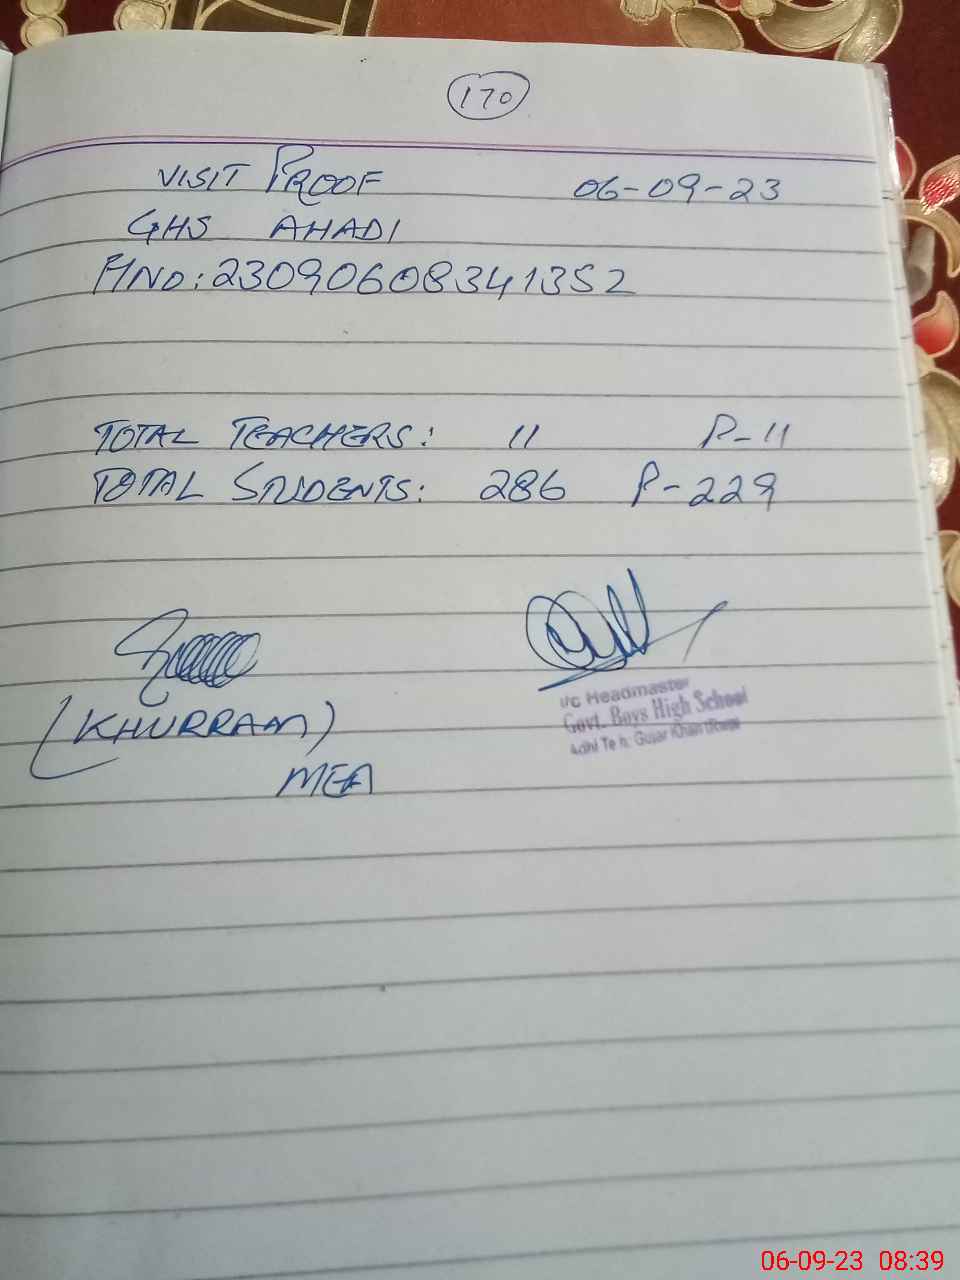 170
VISIT PROOF 06-09-23
GHS AHADI
HNO: 23090608341352
TOTAL TEACHERS: 11 P-11
TOTAL STUDENTS: 286 P-229
(KHURRAM)
MEA
I/c Headmaster
Govt. Boys High School
Teh: Gujar Khan
06-09-23 08:39